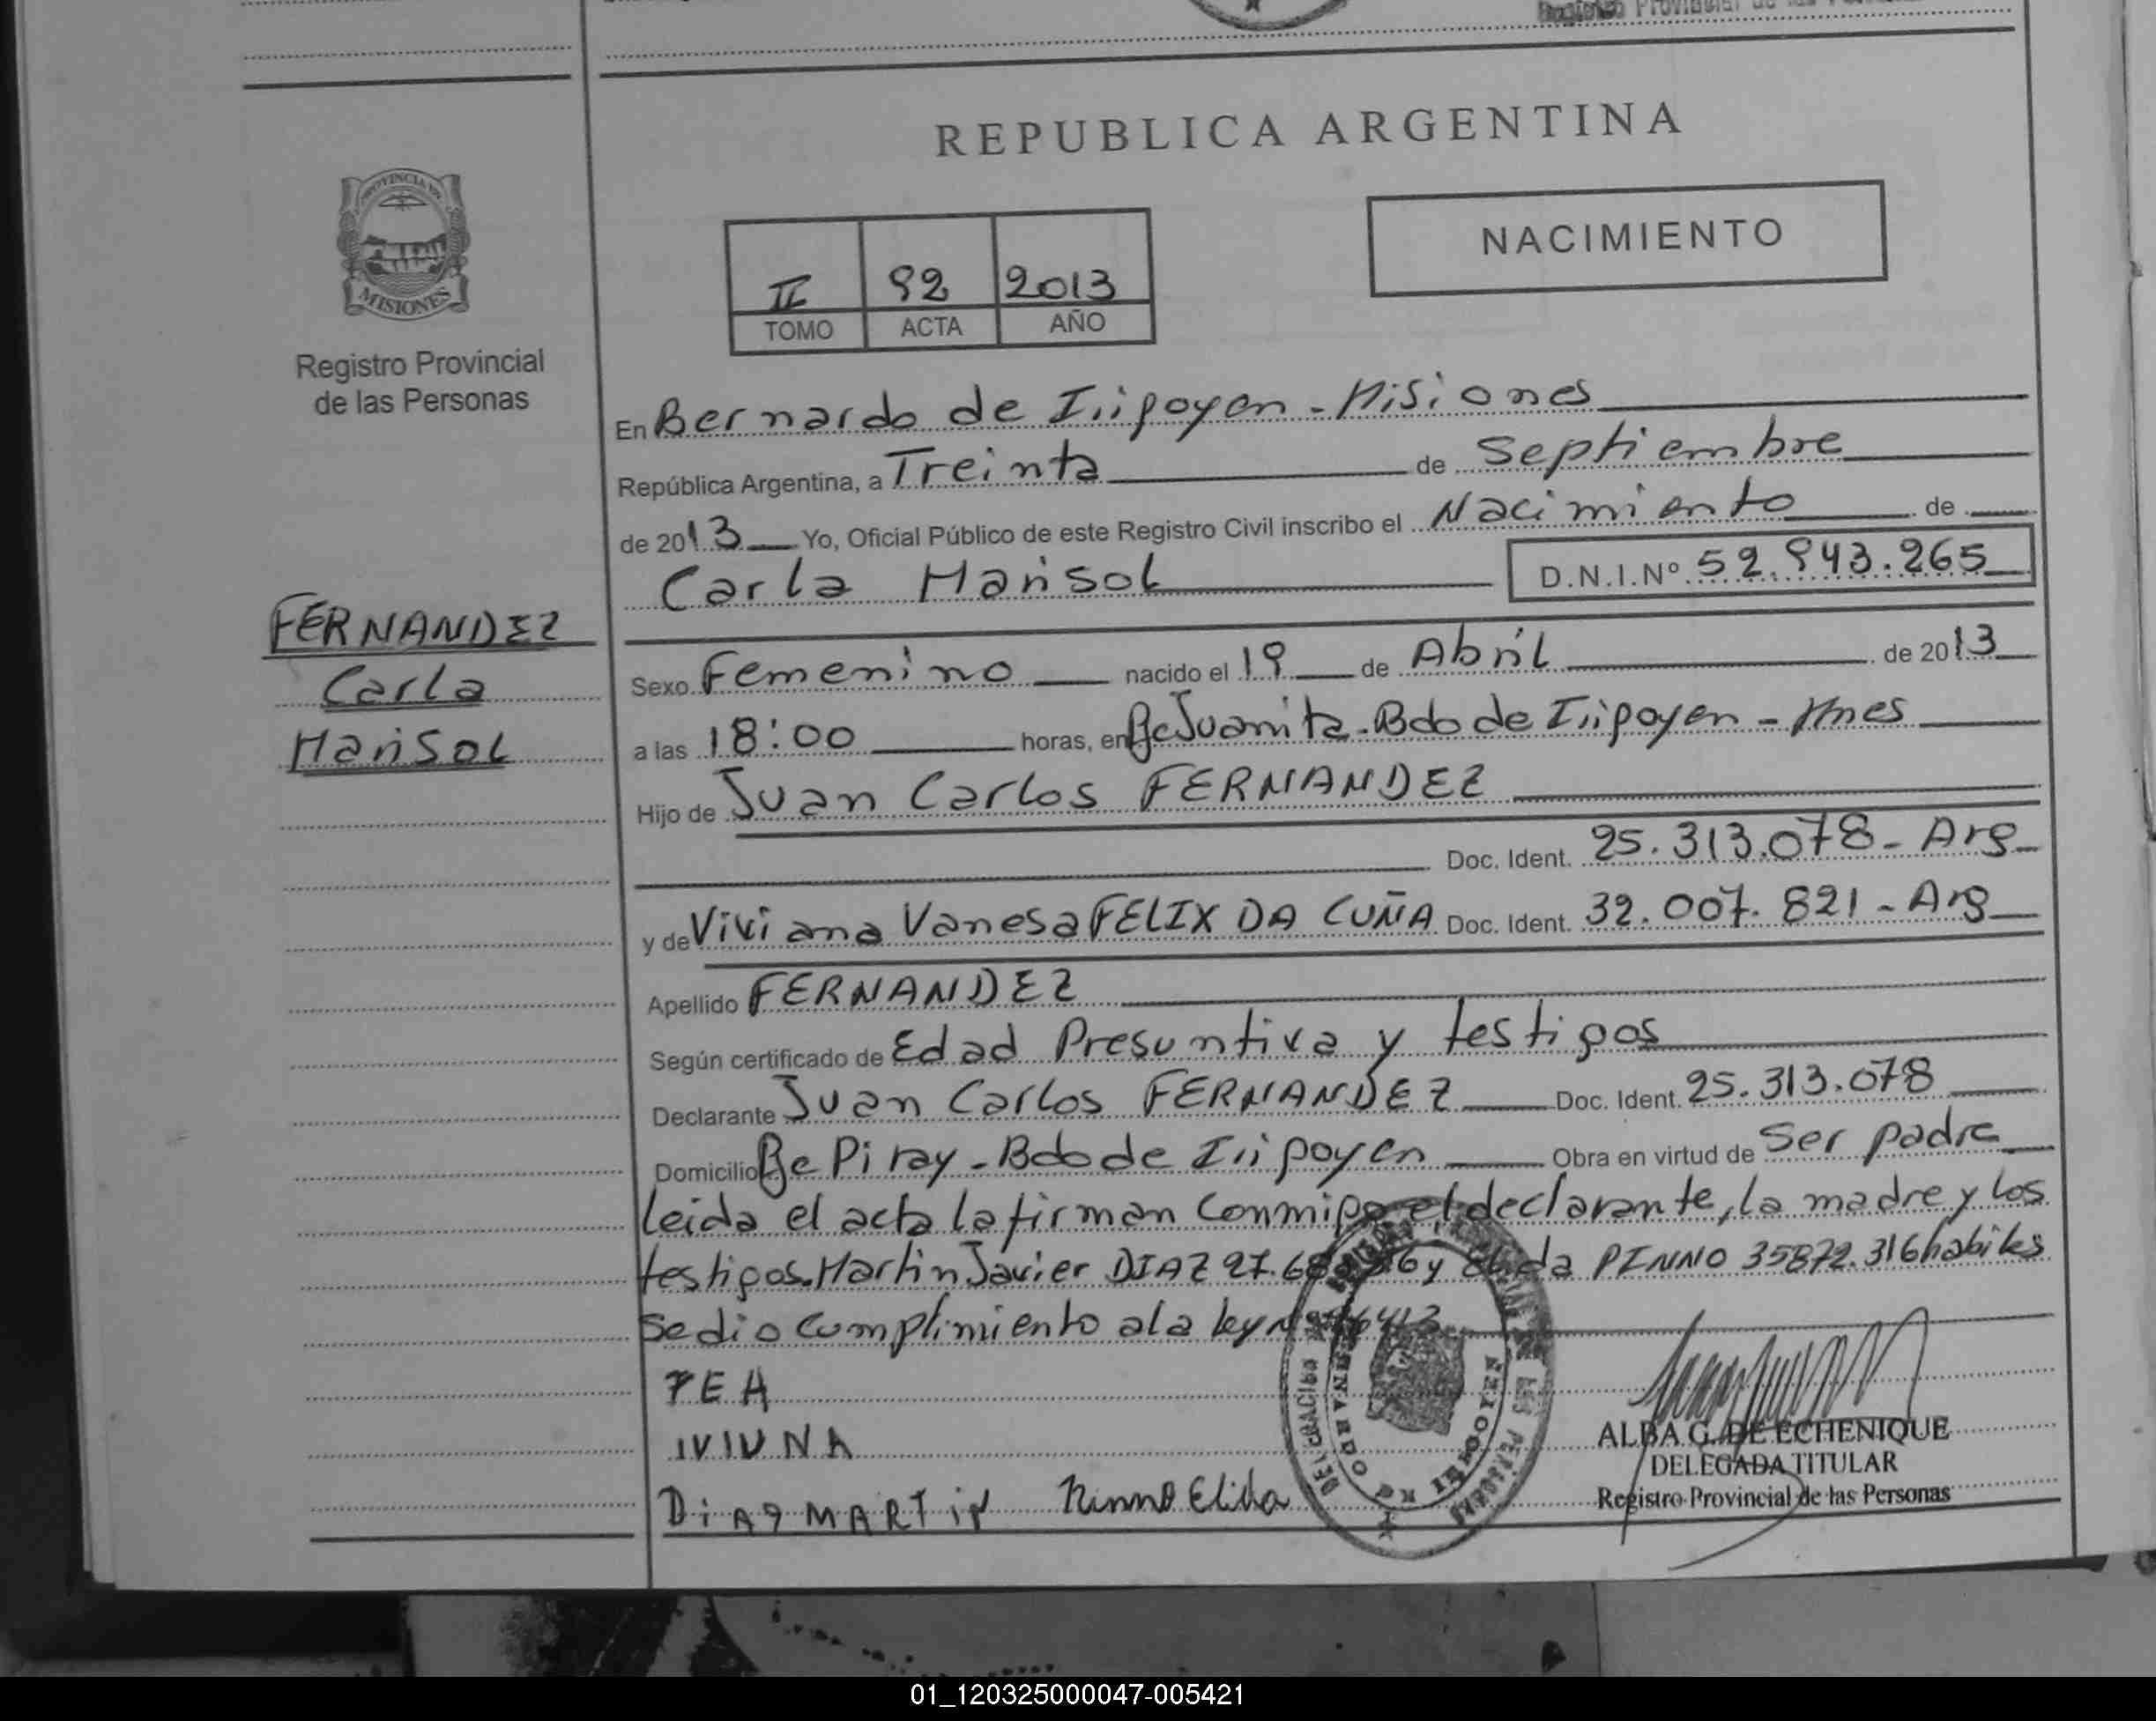 REPUBLICA ARGENTINA
PROVINCIA DE
MISIONES
Registro Provincial
de las Personas
NACIMIENTO
II 92 2013
TOMO ACTA AÑO
En Bernardo de Irigoyen - Misiones
República Argentina, a Treinta de Septiembre
de 2013 Yo, Oficial Público de este Registro Civil inscribo el Nacimiento de
Carla Marisol D.N.I.Nº 52.943.265
FERNANDEZ
Carla
Marisol
Sexo Femenino nacido el 19 de Abril de 2013
a las 18:00 horas, en Bº Juanita - Bdo de Irigoyen - Mnes
Hijo de Juan Carlos FERNANDEZ
Doc. Ident. 25.313.078 - Arg
y de Viviana Vanesa FELIX DA CUÑA Doc. Ident. 32.007.821 - Arg
Apellido FERNANDEZ
Según certificado de Edad Presuntiva y testigos
Declarante Juan Carlos FERNANDEZ Doc. Ident. 25.313.078
Domicilio Bº Piray - Bdo de Irigoyen Obra en virtud de Ser padre
leida el acta la firman Conmigo el declarante, la madre y los
testigos. Martin Javier DIAZ y Elida PINNO 35872.316 habiles
Se dio Cumplimiento a la ley Nº 26413
FEH
IVIUNA
DiAZ MARTiN Pinno Elida
ALBA G. DE ECHENIQUE
DELEGADA TITULAR
Registro Provincial de las Personas
01_120325000047-005421